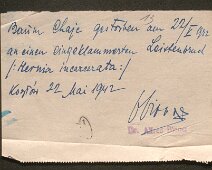 Baum Chaje gestorben am 22/V 942
an einen eingeklammerten Leistenbruch
/: Hernia incercerata :/
22 Mai 1942
Dr. Alfred